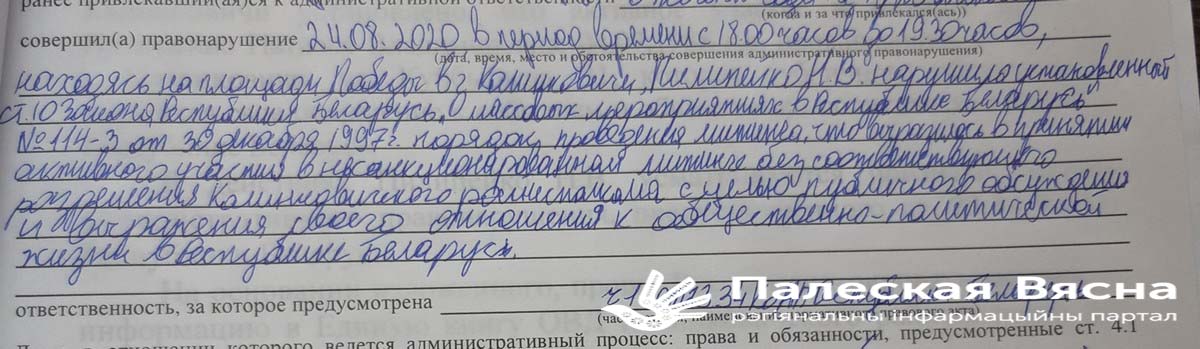 ранее привлекавший(ая)ся к административной ответственности
(когда и за что привлекался(ась))
совершил(а) правонарушение 24.08.2020 в период времени с 18.00 часов до 19.30 часов,
(дата, время, место и обстоятельства совершения административного правонарушения)
находясь на площади Победы в г. Калинковичи, Пилипенко Н.В. нарушила установленный
ст. 10 Закона Республики Беларусь "О массовых мероприятиях в Республике Беларусь"
№ 114-З от 30 декабря 1997 г. порядок проведения митинга, что выразилось в принятии
активного участия в несанкционированном митинге без соответствующего
разрешения Калинковичского райисполкома с целью публичного обсуждения
и выражения своего отношения к общественно-политической
жизни в Республике Беларусь.
ответственность, за которое предусмотрена ч.1
административного правового акта)
Палеская Вясна
рэгіянальны інфармацыйны партал
отношении которого ведется административный процесс: права и обязанности, предусмотренные ст. 4.1